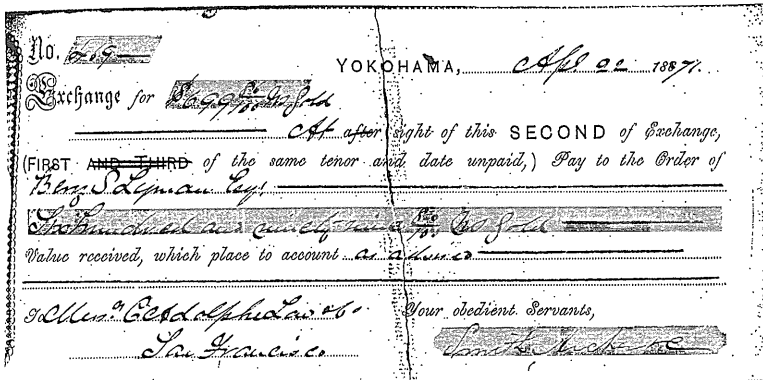 No. 29
YOKOHAMA, Apl 22 1887.
Exchange for $699 50/100 US Gold
At after sight of this SECOND of Exchange,
(FIRST AND THIRD of the same tenor and date unpaid,) Pay to the Order of
Benj S Lyman Esq!
Six hundred and ninety nine 50/100 US Gold
Value received, which place to account as advised
To Messrs C Adolphe Low &Co
San Francisco.
Your obedient Servants,
Smith